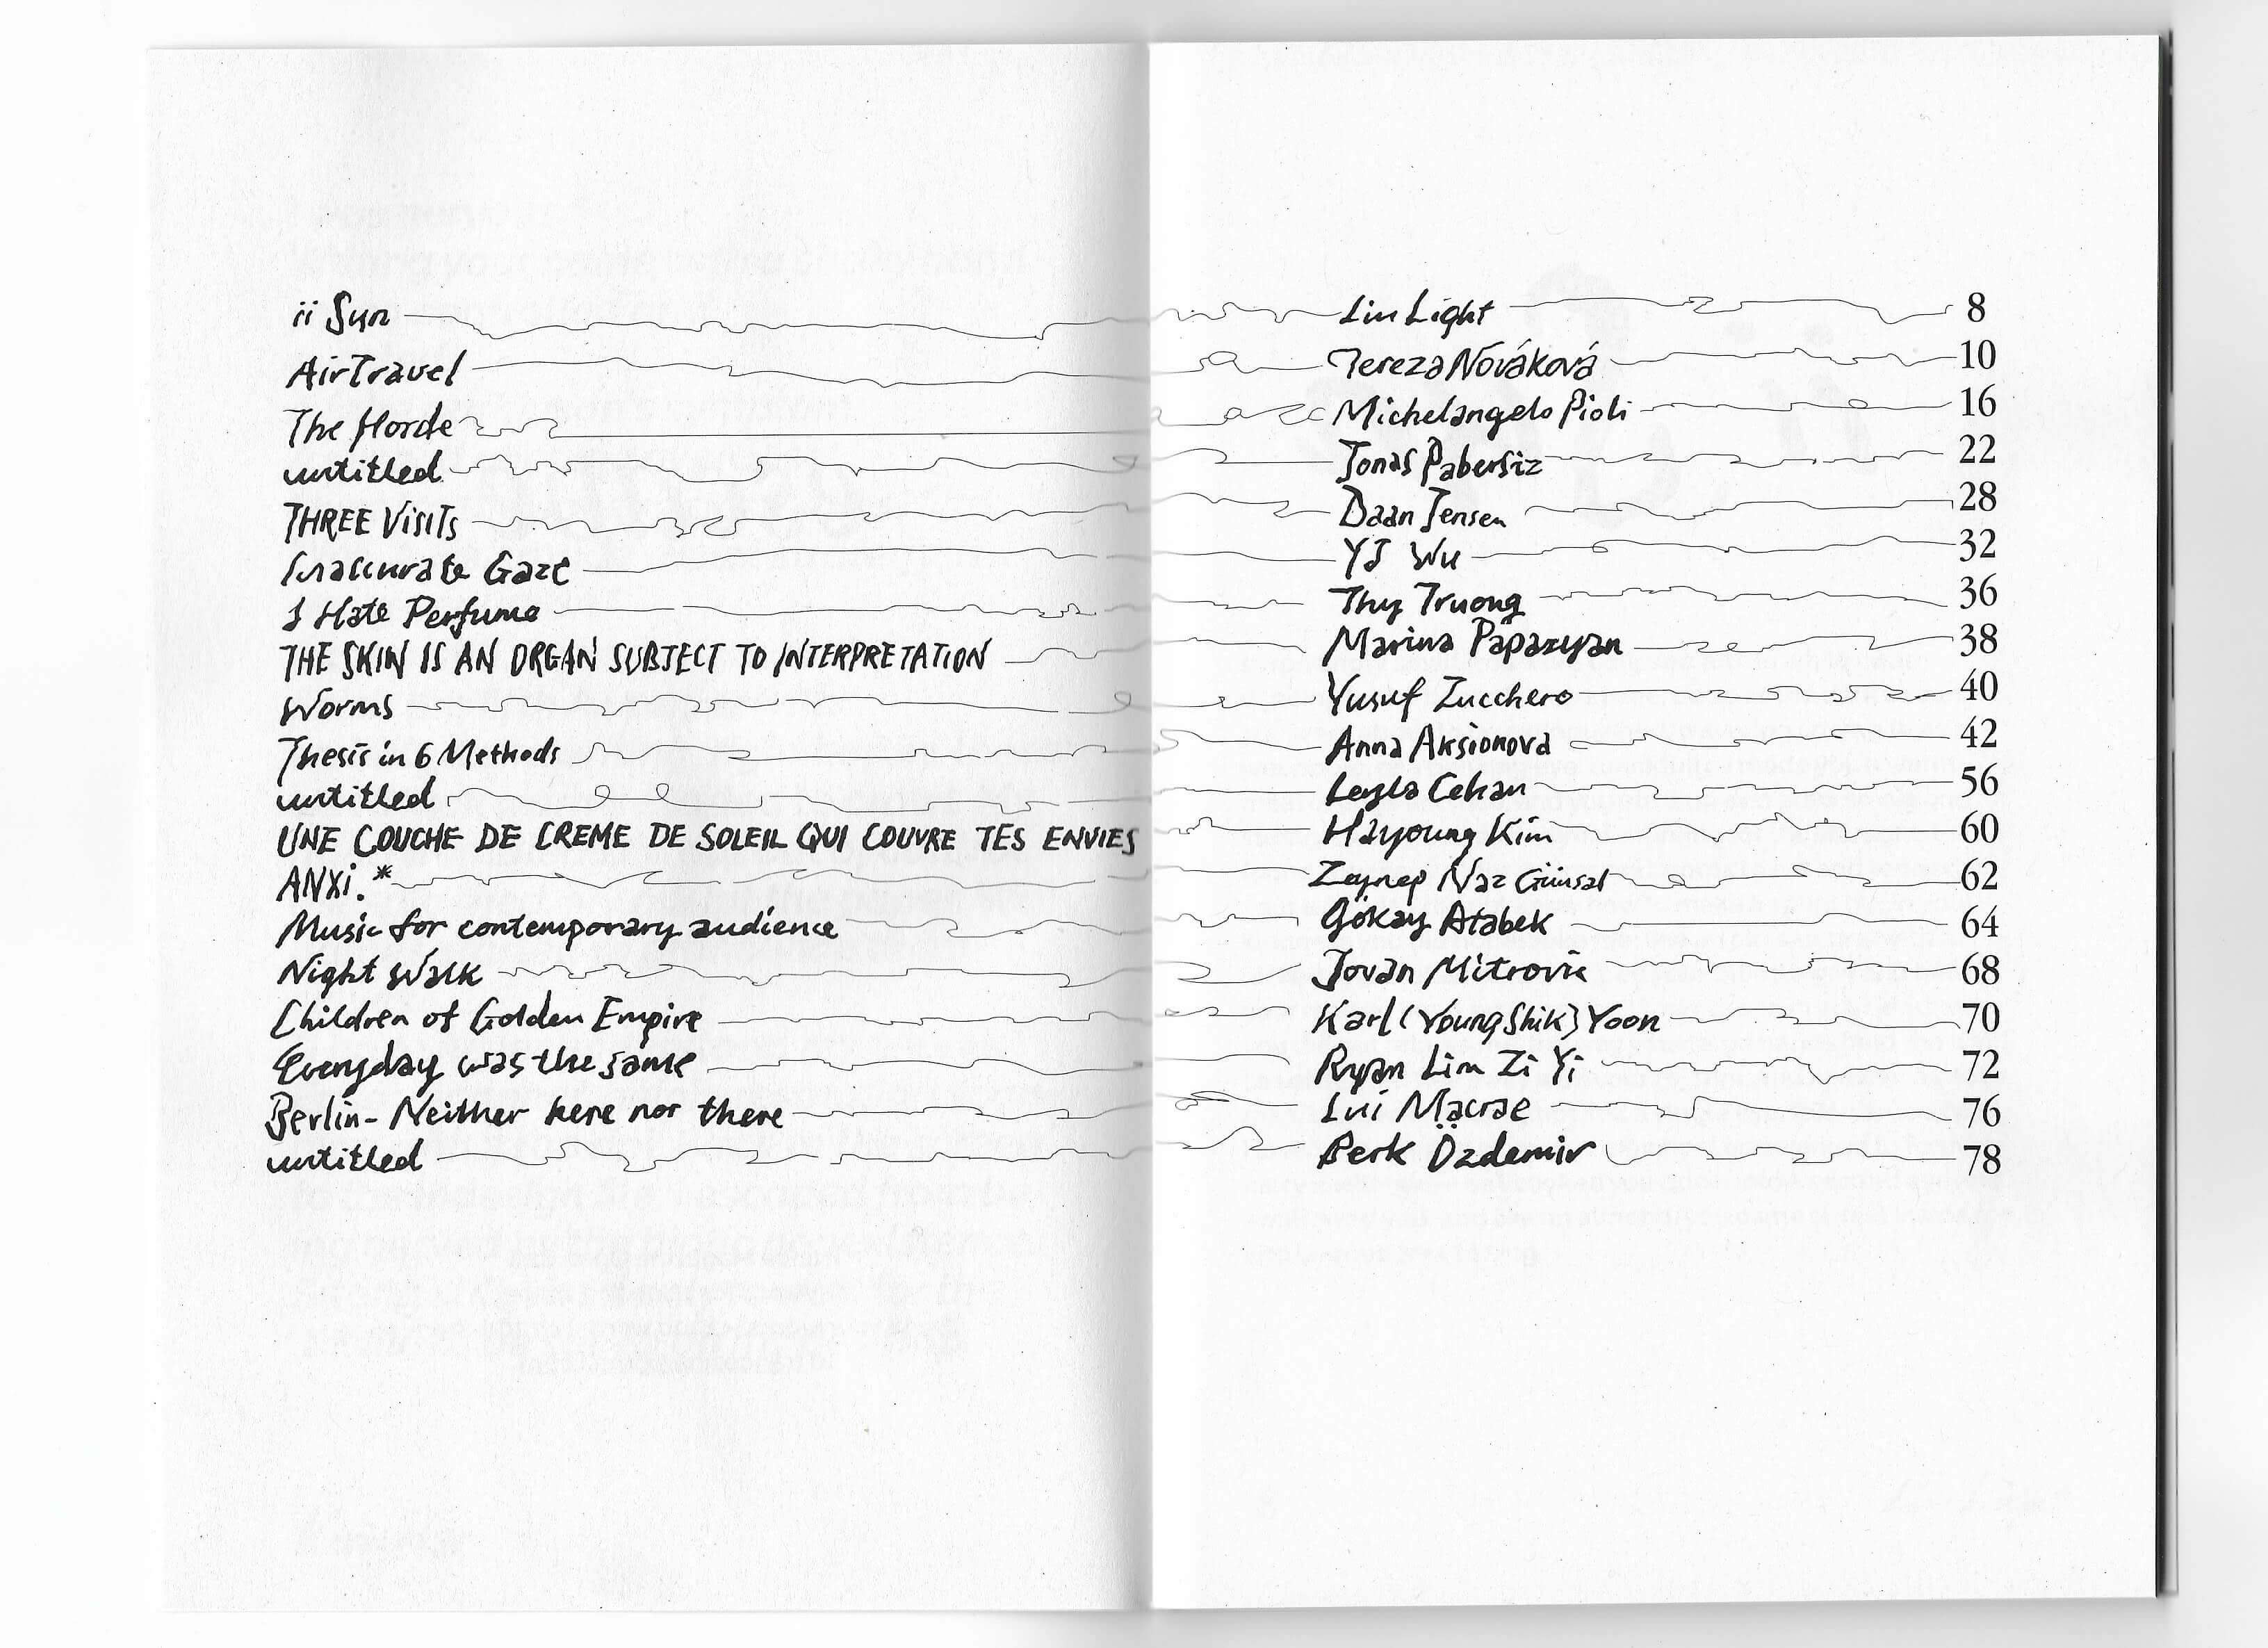 ii Sun Liu Light 8
AirTravel Tereza Nováková 10
The Horde Michelangelo Pioli 16
untitled Jonas Pabersiz 22
THREE VISITS Daan Jensen 28
Inaccurate Gaze YJ Wu 32
I Hate Perfume Thy Truong 36
THE SKIN IS AN ORGAN SUBJECT TO INTERPRETATION Marina Papazyan 38
Worms Yusuf Zucchero 40
Thesis in 6 Methods Anna Aksionova 42
untitled Leyla Cehan 56
UNE COUCHE DE CREME DE SOLEIL QUI COUVRE TES ENVIES Hayoung Kim 60
ANXi.* Zeynep Naz Günsal 62
Music for contemporary audience Gökay Atabek 64
Night Walk Jovan Mitrovic 68
Children of Golden Empire Karl (Young Shik) Yoon 70
Everyday was the same Ryan Lim Zi Yi 72
Berlin - Neither here nor there Lui Macrae 76
untitled Berk Özdemir 78